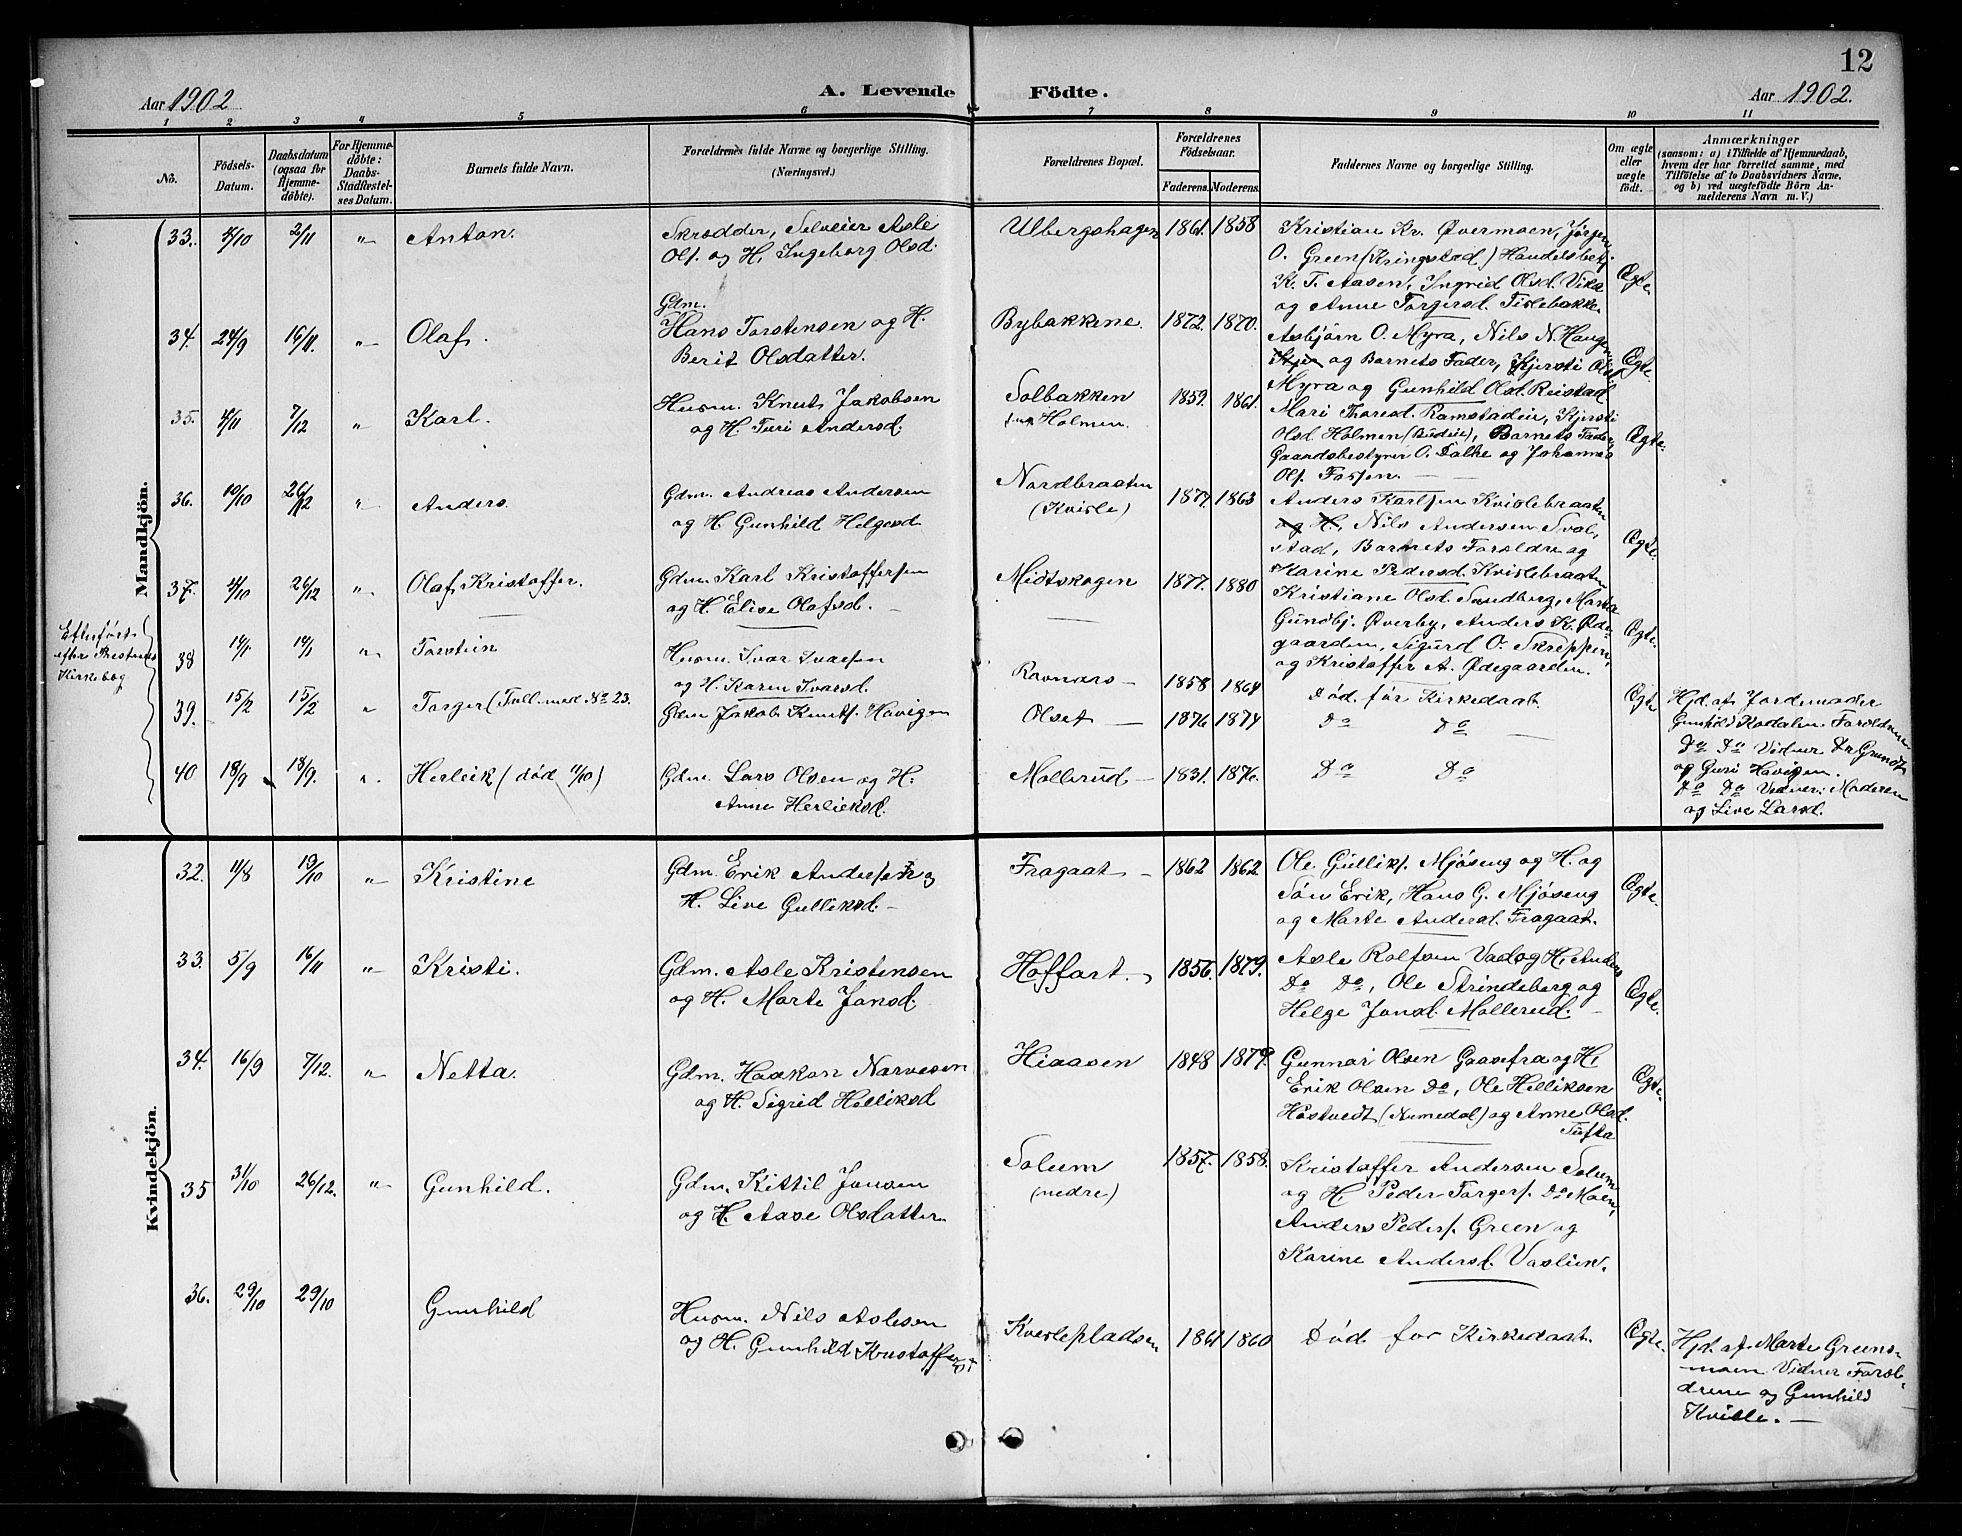 12
Aar 1902
A. Levende Födte.
Aar 1902.
1 2 3 4 5 6 7 8 9 10 11
No.
Födsels-
Datum.
Daabsdatum
(ogsaa for
Hjemme-
døbte).
For Hjemme-
døbte:
Daabs-
Stadfæstel-
ses Datum.
Barnets fulde Navn.
Forældrenes fulde Navne og borgerlige Stilling.
(Næringsvei.)
Forældrenes Bopæl.
Forældrenes
Födselsaar.
Faderens. Moderens.
Faddernes Navne og borgerlige Stilling.
Om ægte
eller
uægte
født.
Anmærkninger
(saasom: a) i Tilfælde af Hjemmedaab,
hvem der har forrettet samme, med
Tilføielse af to Daabsvidners Navne,
og b) ved uægtefødte Börn An-
melderens Navn m. V.)
Mandkjön.
33. 4/10 2/11 " Anton.
Skrædder, Selveier Asle
Ols. og H. Ingeborg Olsd.
Ulbergshagen 1861. 1858
Kristian Kr. Øvermoen, Jørgen
O. Green (Kringstad) Handelsbetj.
K. T. Aasen, Ingrid Olsd. Vika
og Anne Torgersd. Tislebakke.
Ægte.
34. 24/9 16/11. " Olaf.
Gdm.
Hans Torstensen og H.
Berit Olsdatter.
Bybakkene. 1872. 1870.
Asbjörn O. Myra, Nils N. Haugen
og Barnets Fader, Kjersti Olsd.
Myra og Gunhild Olsd. Reistad
Ægte.
35. 4/11 7/12 " Karl.
Husm. Knut Jakobsen
og H. Turi Andersd.
Solbakken
Holmen.
1859. 1861.
Mari Thoresd. Ramstadeie, Kjersti
Olsd. Holmen (Budeie), Barnets Fader,
Gaardsbestyrer O. Dalke og Johannes
Ols. Fosjen.
Ægte.
36. 10/10 26/12 " Anders.
Gdm. Andreas Andersen
og H. Gunhild Helgesd.
Nordbraaten
(Kvisle)
1877. 1863
Anders Karlsen Kvislebraaten
og H., Nils Andersen Sval,
stad, Barnets Forældre og
Karine Pedersd. Kvislebraaten
Ægte.
37. 4/10 26/12 " Olaf Kristoffer.
Gdm. Karl Kristoffersen
og H. Elise Olafsd. -
Midtskogen 1877. 1880
Kristiane Olsd. Sandberg, Marta
Gundbj. Øverby, Anders K. Øde-
gaarden, Sigurd O. Skreppen,
og Kristoffer A. Ødegaarden.
Ægte.
Efterført
efter Prestens
Kirkebog
38 14/1 14/1 " Torstein
Husm. Ivar Ivarsen
og H. Karen Ivarsd.
Ravnaas - 1858 1864
Død før Kirkedaab.
Ægte
Hjd. af Jordemoder
Gunhild Rodalen. Forældrene
39. 15/2 15/2 " Torger (Tvill. med No 23.
Gdm Jakob Knuts. Havigen
Olset - 1876 1874
Do Do
Do Do Vidner Dr Grundt
og Guri Havigen.
40 18/9 18/9. " Herleik (død 11/10)
Gdm. Lars Olsen og H.
Anne Herleiksd.
Mollerud - 1831. 1876.
Do Do
Do Do Vidner: Moderen
og Live Larsd.
Kvindekjön.
32. 11/8 19/10 " Kristine
Gdm. Erik Andersen og
H. Live Gulliksd. -
Fragaat - 1862 1862.
Ole Gulliks. Mjøseng og H. og
Søn Erik, Hans G. Mjøseng
og Marte Andersd. Fragaat.
Ægte.
33. 5/9 16/11 " Kristi.
Gdm. Asle Kristensen
og H. Marte Jonsd.
Hoffart. 1856. 1879.
Asle Rolfsen Vad og H. Anders
Do Do, Ole Strindeberg og
Helge Jonsd. Mollerud. -
Ægte.
34. 16/9 7/12. " Netta.
Gdm. Haakon Narvesen
og H. Sigrid Helliksd
Hiaasen 1848 1879.
Gunnar Olsen Gaasefra og H.
Erik Olsen Do, Ole Helliksen
Hostvedt (Numedal) og Anne Olsd.
Tufta
Ægte.
35 31/10 26/12. " Gunhild.
Gdm. Kittil Jonsen
og H. Aase Olsdatter.
Solum
(nedre)
1857. 1858.
Kristoffer Andersen Solum
og H. Peder Torgers. Do Moen,
Anders Peders. Green og
Karine Andersd. Vaslien.
36. 29/10 29/10 Gunhild
Husm. Nils Aslesen
og H. Gunhild Kristoffersd
Kvislepladsen 1861 1860
Død for Kirkedaab.
Ægte.
Hjd. af Marte Greens-
moen Vidner Foræl-
drene og Gunhild
Kvisle. -